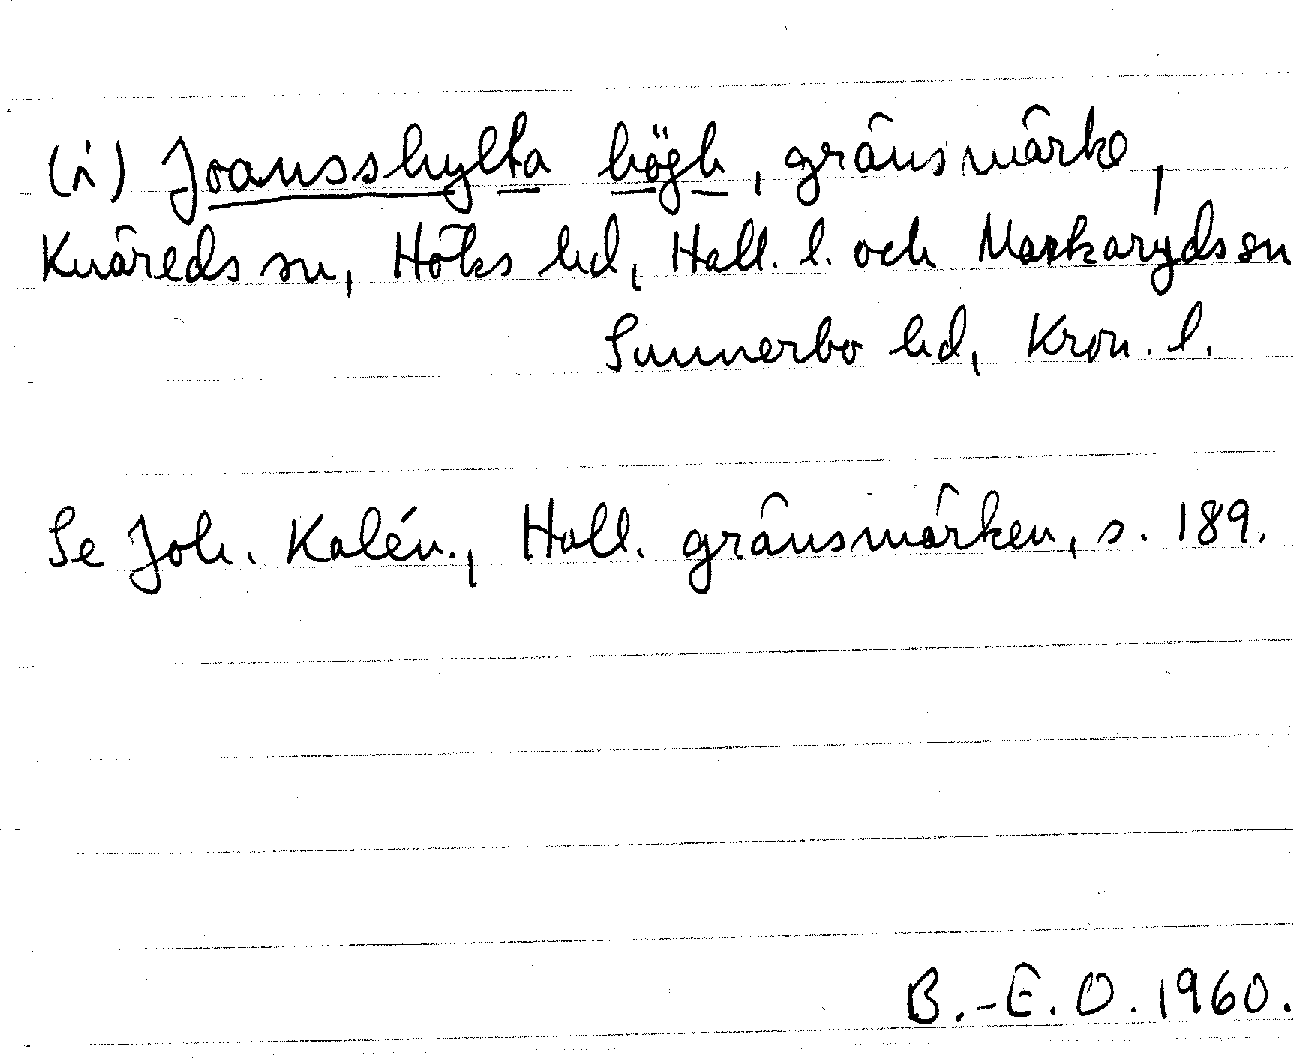 (i) Joansshylta högh, gränsmärke,
Knäreds sn, Höks hd, Hall. l. och Markaryds sn
Sunnerbo hd, Kron. l.
Se Joh. Kalén., Hall. gränsmärken, s. 189.
B.-E. O. 1960.